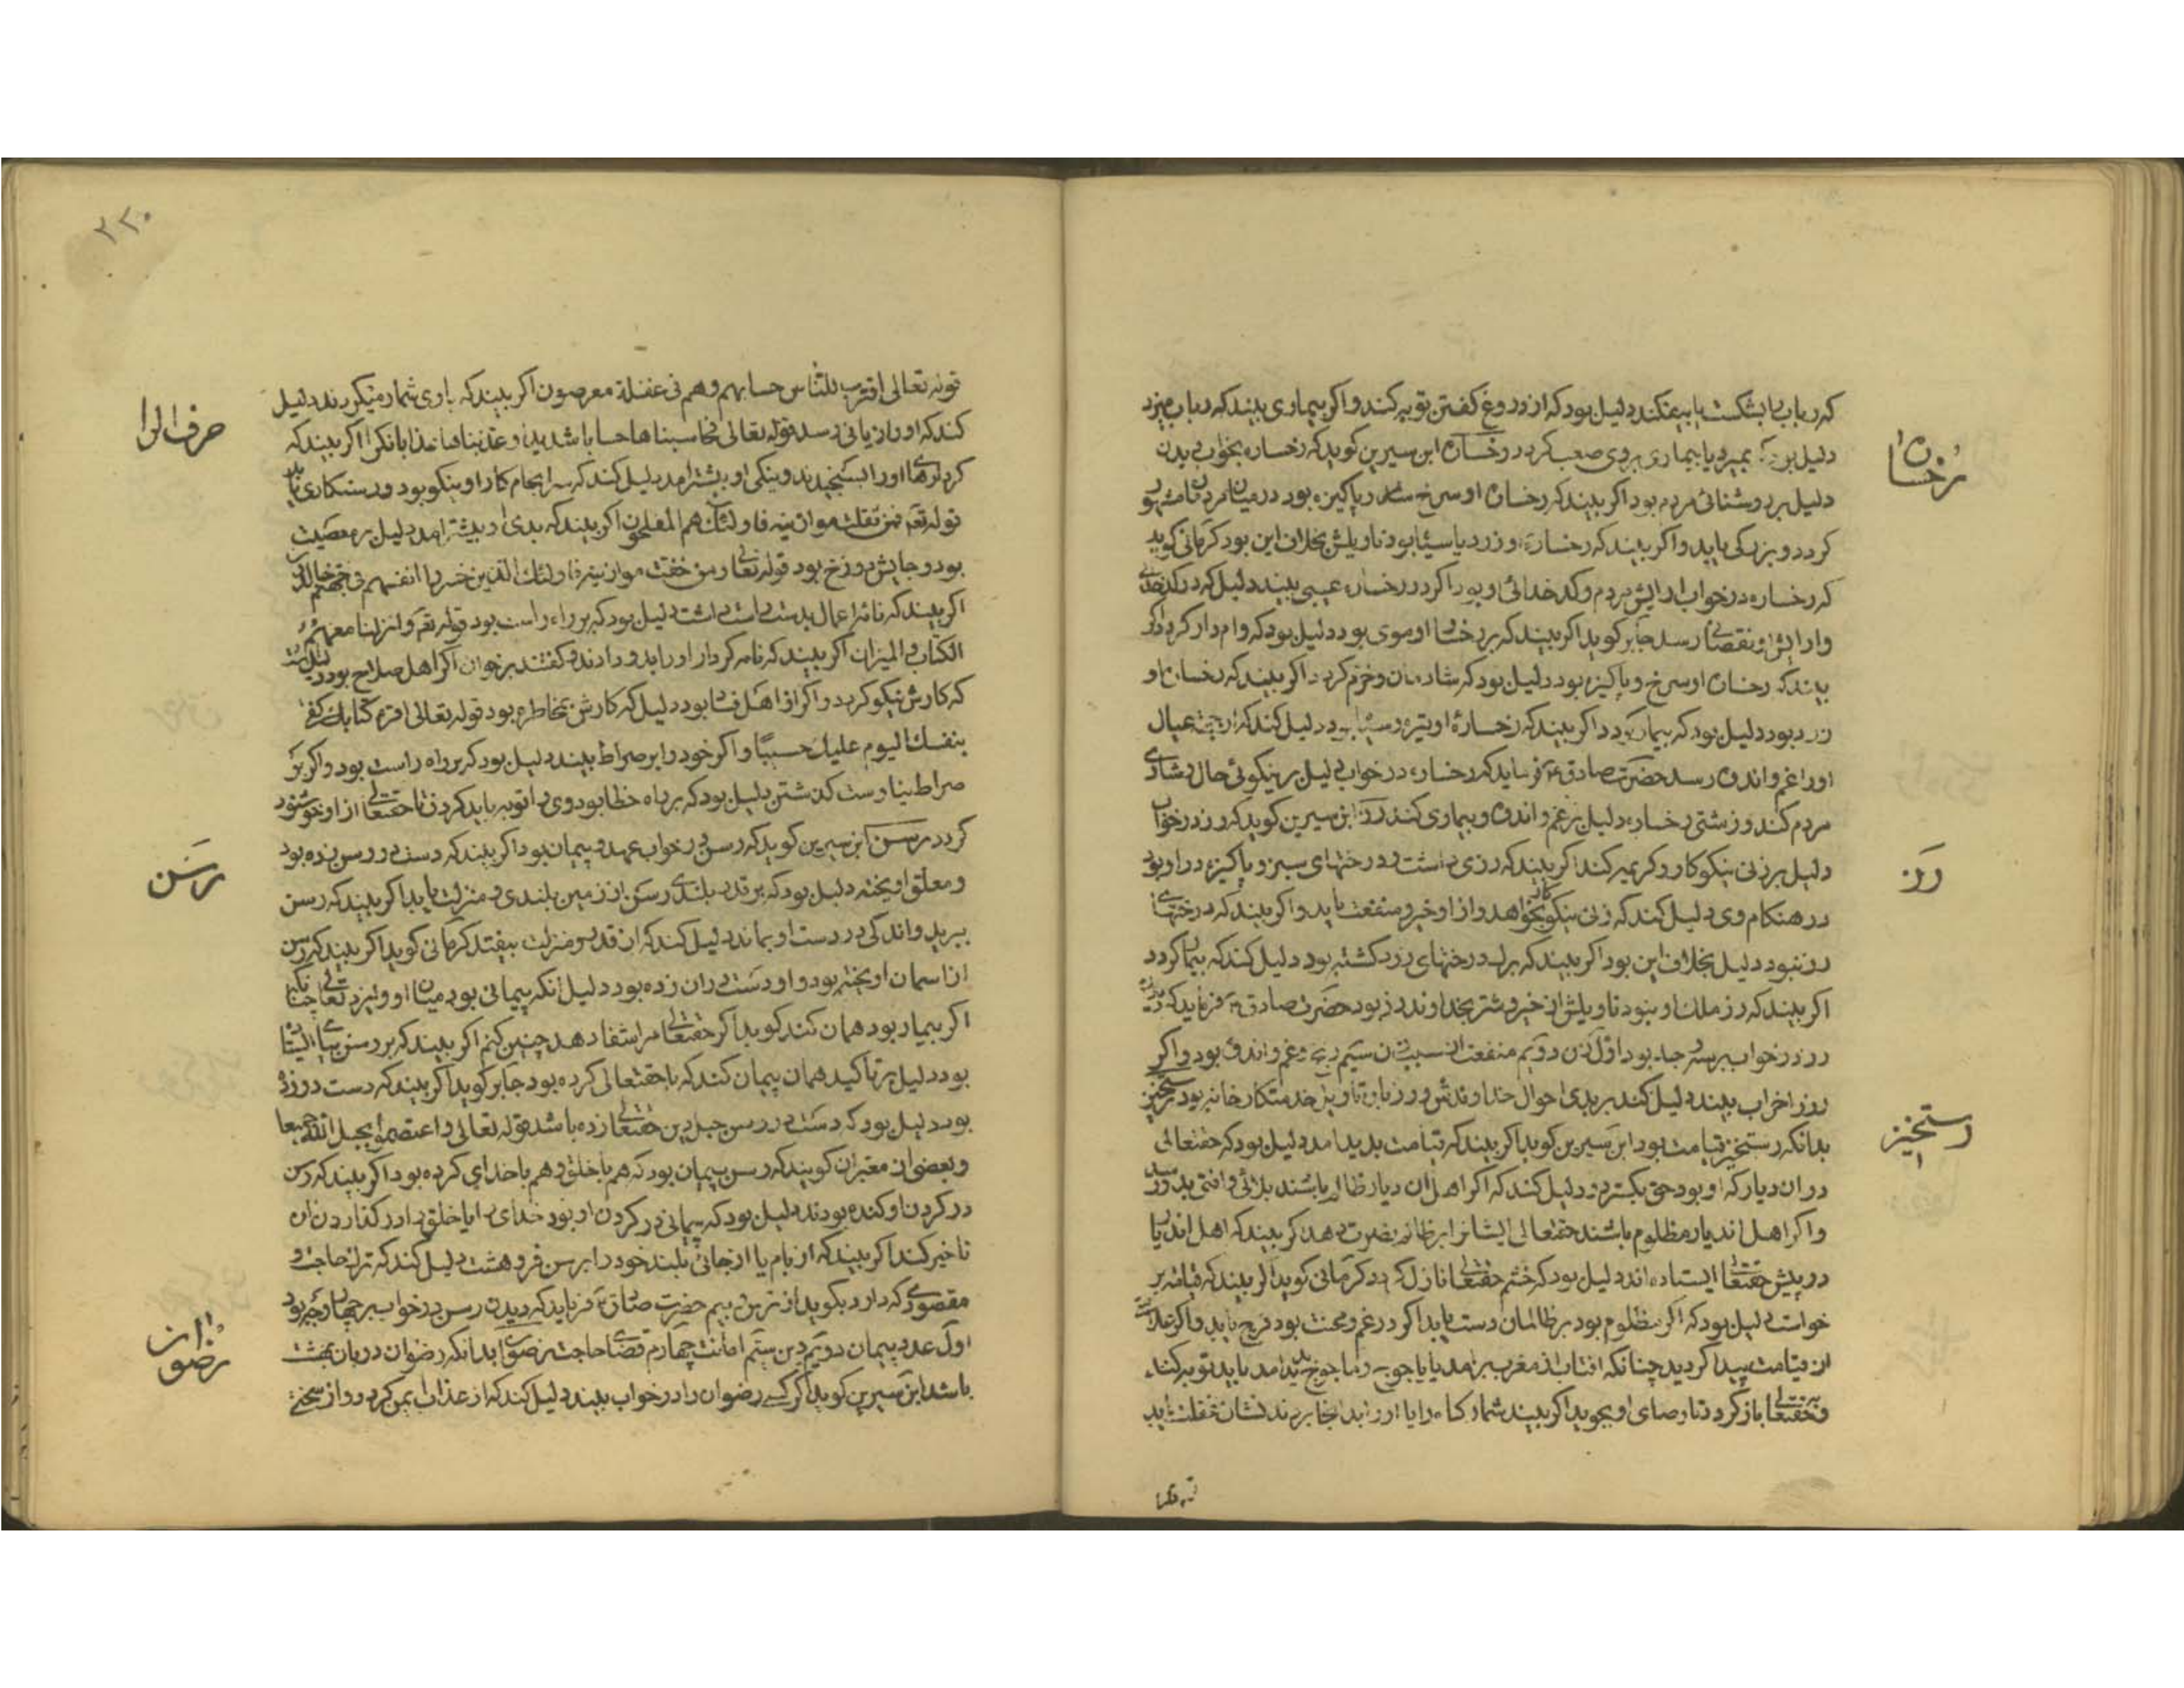 که رباب را بشکست یا بیفکند دلیل بود که از دروغ کفتن توبه کند و اکر بیماری بیند که رباب میزد
دلیل بمیرد یا بیماری بروی صعب کردد رخساره ابن سیرین کوید که رخساره بخواب دیدن
رخساره
دلیل بر روشنائی مردم بود اکر بیند که رخساره او سرخ و پاکیزه بود در میان مردمان
کردد و بزرکی یابد و اکر بیند که رخساره او زرد یا سیاه بود تاویلش بخلاف این بود کرمانی کوید
که رخساره در خواب ارایش مردم و کدخدائی او بود اکر در رخساره عیبی بیند دلیل که در کدخدائی
وارایش نقصان رسد جابر کوید اکر بیند که بر رخساره او موی بود دلیل بود که وام دار کردد اکر
بیند که رخساره او سرخ و پاکیزه بود دلیل بود که شادمان و خرم کردد اکر بیند که رخساره او
زرد بود دلیل بود که بیمار کردد اکر بیند که رخساره او تیره و سیاه بود دلیل کند که از جهت عیال
او را غم و اندوه رسد حضرت صادق ع فرماید که رخساره در خواب دلیل بر نیکوئی حال و شادی
مردم کند و زشتی رخساره دلیل بر غم و اندوه و بیماری کند رز ابن سیرین کوید که رز در خواب
رز
دلیل بر زنی نیکوکار و کریم کند اکر بیند که رزی داشت و درختهای سبز و پاکیزه در او بود
در هنکام وی دلیل کند که زنی نیکوکار بخواهد و از او خیر و منفعت یابد و اکر بیند که درختهای
رز نبود دلیل بخلاف این بود اکر بیند که برک درختهای رز زرد کشته بود دلیل کند که بیمار کردد
اکر بیند که رز ملک او نبود تاویلش از خیر و شر بخداوند رز بود حضرت صادق ع فرماید که
رز در خواب بر سه وجه بود اول زن دویم منفعت سیم غم و اندوه بود و اکر
رز را خراب بیند دلیل کند بر بدی احوال خداوندش
بدانکه رستخیز قیامت بود ابن سیرین کوید اکر بیند که قیامت پدید امد دلیل بود که حقتعالی
رستخیز
در ان دیار که او بود حق بکسترد و دلیل کند که اکر اهل ان دیار ظالم باشند بلائی و افتی بدو رسد
و اکر اهل اندیار مظلوم باشند حقتعالی ایشانرا بر ظالم نصرت دهد اکر بیند که اهل اندیار
در پیش حقتعالی ایستاده اند دلیل بود که خشم حقتعالی نازل کردد کرمانی کوید اکر بیند که قیامت بر
خواست دلیل بود که اکر مظلوم بود بر ظالمان دست یابد اکر در غم و محنت بود فرج یابد و اکر علامت
از قیامت پیدا کردید چنانکه افتاب از مغرب برامد یا یاجوج و ماجوج پدید امد باید توبه کند
و بحقتعالی باز کردد تا رضای او بجوید اکر بیند
قوله تعالی
۲۲۰
قوله تعالی اقترب للناس حسابهم وهم فی غفلة معرضون اکر بیند که با وی شمار میکردند دلیل
حرف الرا
کند که او را زیانی رسد قوله تعالی فحاسبناها حسابا شدیدا وعذبناها عذابا نکرا اکر بیند که
کردارهای او را بسنجیدند و نیکی او بیشتر امد دلیل کند که سرانجام کار او نیکو بود و رستکاری یابد
قوله تعم فمن ثقلت موازینه فاولئک هم المفلحون اکر بیند که بدی او بیشتر امد دلیل بر معصیت
بود و جایش دوزخ بود قوله تعالی ومن خفت موازینه فاولئک الذین خسروا انفسهم فی جهنم خالدون
اکر بیند که نامه اعمال بدست راست داشت دلیل بود که بر راه راست بود قوله تعم وانزلنا معهم
الکتاب والمیزان اکر بیند که نامه کردار او را بدو دادند و کفتند برخوان اکر اهل صلاح بود دلیل
که کارش نیکو کردد و اکر از اهل فساد بود دلیل که کارش بخاطره بود قوله تعالی اقرء کتابک کفی
بنفسک الیوم علیک حسیبا و اکر خود را بر صراط بیند دلیل بود که بر راه راست بود و اکر بر
صراط نیارست کذشتن دلیل بود که بر راه خطا بود وی را توبه باید کردن تا حقتعالی از او خوشنود
کردد رسن ابن سیرین کوید که رسن در خواب عهد و پیمان بود اکر بیند که دست در رسن زده بود
رسن
و معلق اویخته دلیل بود که بر قدر بلندی رسن از زمین بلندی و منزلت یابد اکر بیند که رسن
ببرید و اندکی در دست او بماند دلیل کند که از قدر و منزلت بیفتد کرمانی کوید اکر بیند که رسن
از اسمان اویخته بود و او دست دران زده بود دلیل انکه پیمانی بود میان او و ایزد تعالی چنانکه
اکر بیمار بود همان کند کوید اکر حقتعالی مرا شفا دهد چنین کنم اکر بیند که بر رسن
بود دلیل بر تاکید همان پیمان کند که با حقتعالی کرده بود جابر کوید اکر بیند که دست در رسن زده
بود دلیل بود که دست در رسن حبل دین حقتعالی زده باشد قوله تعالی واعتصموا بحبل الله جمیعا
و بعضی از معبران کویند که رسن پیمان بود که هم با خلق و هم با خدای کرده بود اکر بیند که رسن
در کردن او کنده بودند دلیل بود که پیمانی در کردن او بود خدای را یا خلق را و در کذاردن ان
تاخیر کند اکر بیند که از بام یا از جائی بلند خود را بر رسن فروهشت دلیل کند که ترک حاجت و
مقصودی که دارد بکوید از ترس و بیم حضرت صادق ع فرماید که دیدن رسن در خواب بر چهار وجه بود
اول عهد و پیمان دویم دین سیم امانت چهارم قضای حاجت رضوان بدانکه رضوان دربان بهشت
رضوان
باشد ابن سیرین کوید اکر کسی رضوان را در خواب بیند دلیل کند که از عذاب ایمن کردد و از سختی